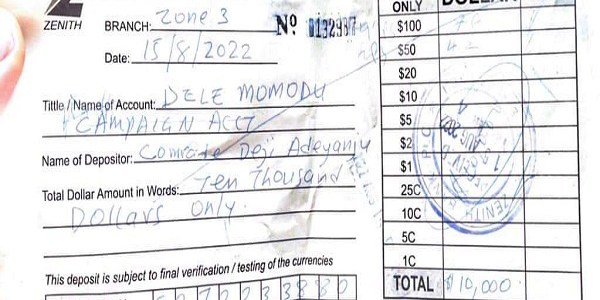 ZENITH
BRANCH: Zone 3
Nº 0132987
Date: 15/8/2022
Tittle / Name of Account: DELE MOMODU
CAMPAIGN ACCT
Name of Depositor: Comrade Deji Adeyanju
Total Dollar Amount in Words: Ten Thousand
Dollars only.
This deposit is subject to final verification / testing of the currencies
ONLY
$100
$50
$20
$10
$5
$2
$1
25C
10C
5C
1C
TOTAL $10,000
ZENITH